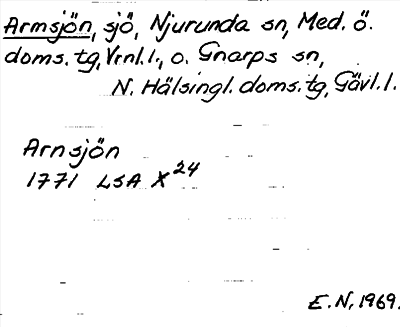 Armsjön, sjö, Njurunda sn, Med. ö.
doms. tg, Vrnl. l., o. Gnarps sn,
N. Hälsingl. doms. tg, Gävl. l.
Arnsjön
1771 LSA X²⁴
E. N. 1969.